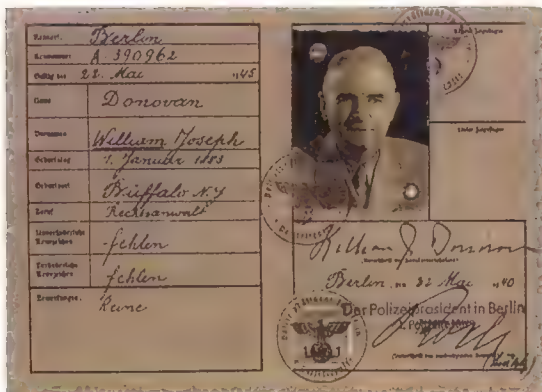 Kennort: Berlin
Kennnummer: A 390962
Gültig bis 22. Mai 1945
Name Donovan
Vornamen William Joseph
Geburtstag 1. Januar 1883
Geburtsort Buffalo N.Y
Beruf Rechtsanwalt
Unveränderliche Kennzeichen fehlen
Veränderliche Kennzeichen fehlen
Bemerkungen: Keine
William J. Donovan
Berlin, den 22 Mai 1940
Der Polizeipräsident in Berlin